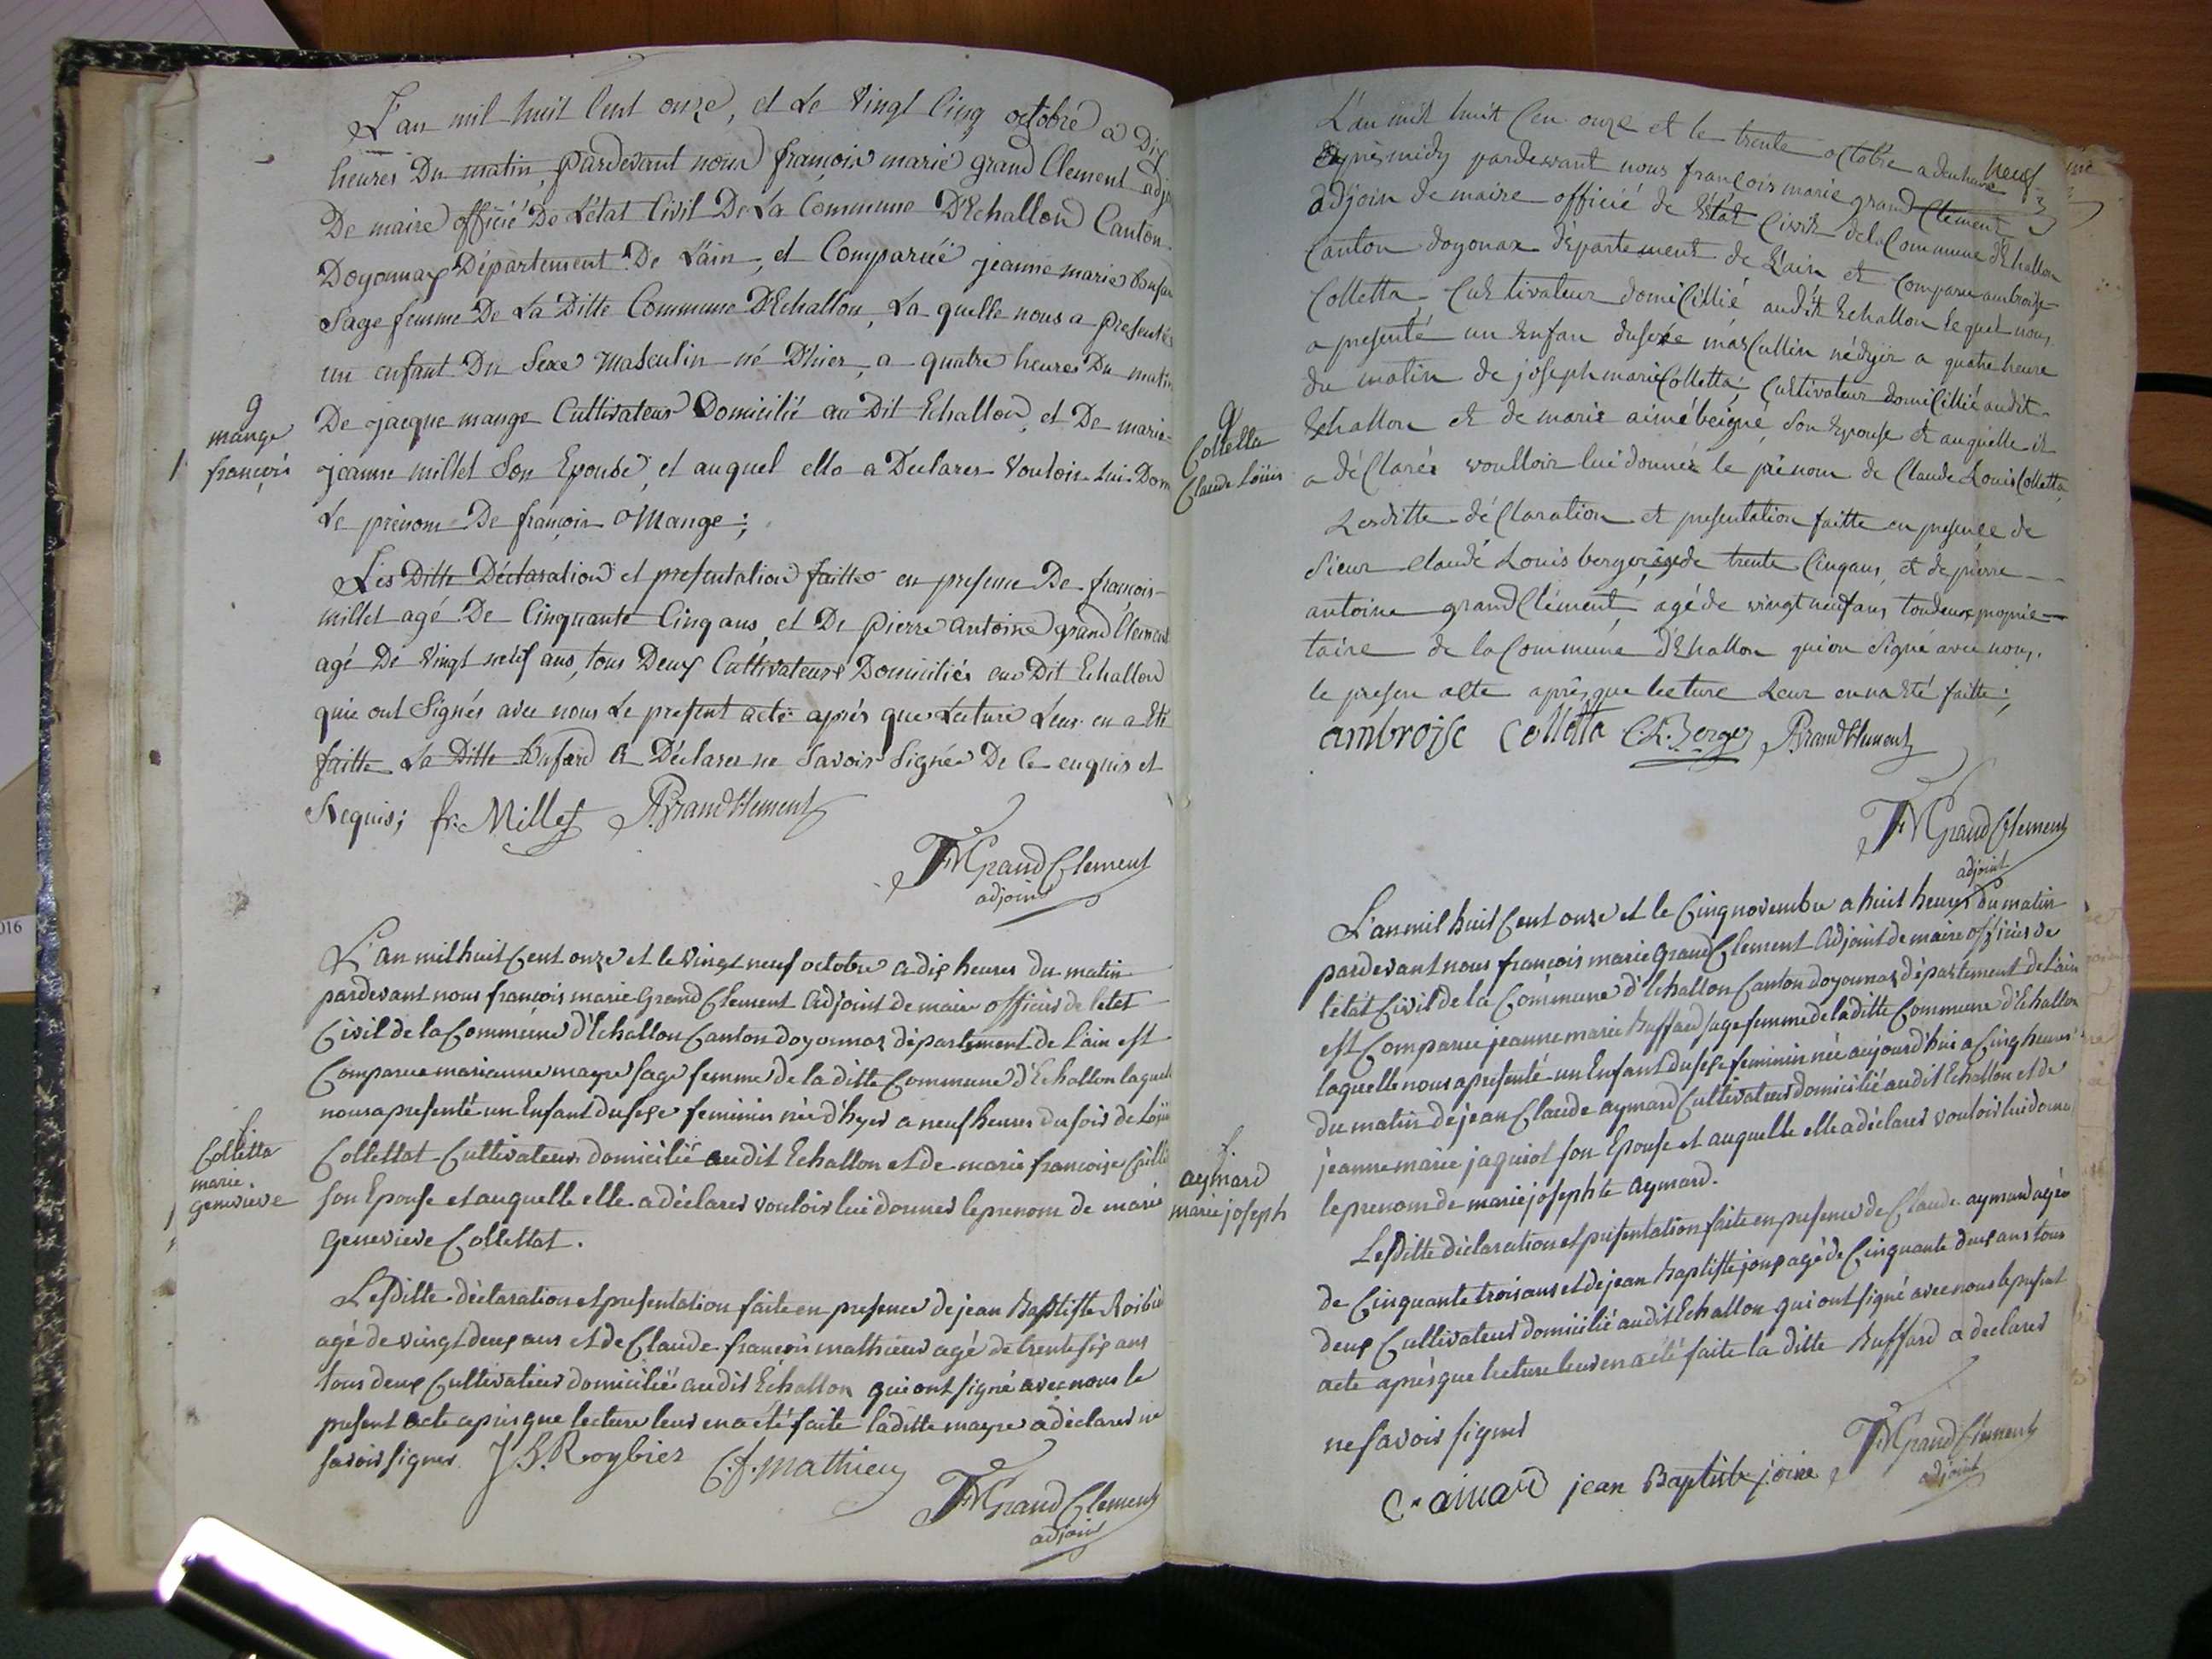 L'an mil huit Cent onze, et Le Vingt Cinq octobre a Dix
heures Du matin, pardevant nous françois marie grand Clement adj
De maire officié De L'état Civil De La Commune D'Echallon Canton
Doyonnax Département De L'ain, et Comparüe jeanne marie
Sage femme De La Ditte Commune D'Echallon, La quelle nous a presentés
un enfant Du Sexe Masculin né D'hier, a quatre heures Du matin
g
mange
françois
De jacque mange Cultivateur Domicilié au Dit Echallon, et De marie
jeanne millet Son Epouse, et auquel elle a Declarer Vouloir Lui Donn
Le prénom De françois Mange;
Les Ditte Déclaration et presentation faitte en presence De françois
millet agé De Cinquante Cinq ans, et De pierre antoine grand Clement
agé De Vingt neuf ans, tous Deux Cultivateurs Domiciliés au Dit Echallon
qui ont Signés avec nous Le present acte aprés que Lecture Leur en a Eté
faitte La Ditte Bufard a Déclarer ne Savoir Signée De Ce enquis et
Requis; fr. Millet PGrandClement
FMGrandClement
adjoint
L'an mil huit Cent onze et le vingt neuf octobre a dix heures du matin
pardevant nous françois marie Grand Clement Adjoint de maire officier de letet
Civil de la Commune d'Echallon Canton doyonnax département de L'ain est
Comparue marianne mayre sage femme de la ditte Commune d'Echallon laquele
nous a presenté un Enfant du sexe feminin née d'hyer a neuf heures du soir de Loüis
f.
Colletta
marie.
genevieve
Collettat Cultivateur domicilié audit Echallon et de marie françoise
son Epouse et auquelle elle a déclarer vouloir lui donner le prenom de marie
Genevieve Collettat.
Lesditte déclaration et presentation faite en presence de jean Baptiste Roibier
agé de vingt deux ans et de Claude françois mathieu agé de trente six ans
tous deux Cultivateur domicilié audit Echallon qui ont signé avec nous le
present acte après que lecture leur en a été faite laditte mayre a déclarer ne
savoir signer J B. Roybier C. f. mathieu
FMGrandClement
adjoint
L'an mil huit Cen onze et le trente octobre a deuheure neuf
après midy pardevant nous françois marie grand Clement
adjoin de maire officié de L'état Civil de la Commune d'Ehallon
Canton doyonax département de L'ain et Comparu ambroise
Colletta Cultivateur domicillié audit Echallon lequel nous
a presenté un Enfan du sexe masCullin né dyer a quatre heure
du matin de joseph marie Colletta, Cultivateur domicillié audit
g
Colletta
Claude Loüis
Echallon et de marie aimé beigne, Son Epouse et auquelle il
a déClarés voulloir lui donner le prénom de Claude Louis Colletta
Lesditte déClaration et presentation faitte en presence de
Sieur Claude Louis berger agede trente Cinq ans, et de pierre
antoine grand Clément, agé de vingt neuf ans, tou deux proprie
taire de la Commune d'Ehallon qui on Signé avec nous.
le presen acte après que lecture Leur en na Eté faitte;
ambroise Colletta C. L. Berger PGrandClement
FMGrandClement
adjoint
L'an mil huit Cent onze et le Cinq novembre a huit heures du matin
pardevant nous françois marie Grand Clement Adjoint de maire officier de
l'état Civil de la Commune d'Echallon Canton doyonnax département de L'ain
est Comparue jeanne marie Buffard sage femme de la ditte Commune d'Echallon
laquelle nous a presenté un Enfant du sexe feminin née aujourd'hui a Cinq heures
du matin de jean Claude aymard Cultivateur domicilié audit Echallon et de
f.
aymard
marie joseph
jeanne marie jaquiot son Epouse et auquelle elle a déclarer vouloir lui donner
le prenom de marie josephte Aymard.
Lesditte déclaration et présentation faite en presence de Claude aymard agée
de Cinquante trois ans et de jean Baptiste joux agé de Cinquante deux ans tous
deux Cultivateur domicilié audit Echallon qui ont signé avec nous le present
acte après que lecture leur en a été faite la ditte Buffard a declarer
ne savoir signer
FMGrandClement
adjoint
C. aimard jean Baptiste joux